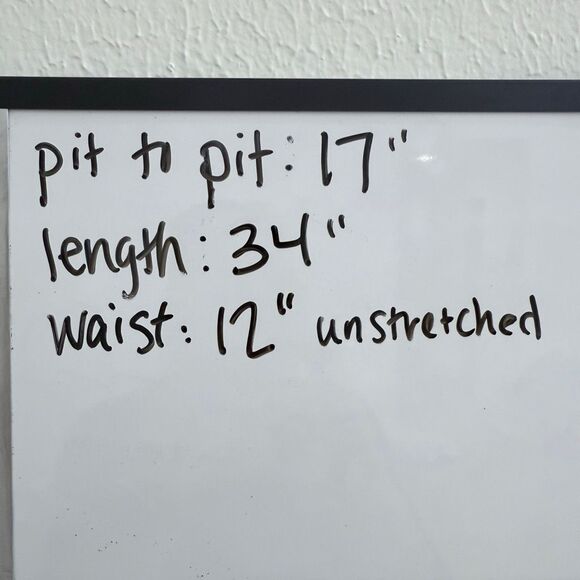 pit to pit: 17"
length: 34"
waist: 12" unstretched